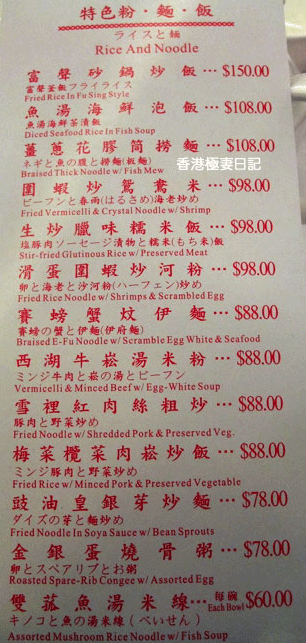 特色粉・麵・飯
ライスと麺
Rice And Noodle
富聲砂鍋炒飯… $150.00
富聲釜飯フライライス
Fried Rice In Fu Sing Style
魚湯海鮮泡飯… $108.00
魚湯海鮮茶漬飯
Diced Seafood Rice In Fish Soup
薑蔥花膠筒撈麵… $108.00
ネギと魚の腹と撈麵(板麺)
Braised Thick Noodle w/ Fish Mew
香港極妻日記
圍蝦炒鴛鴦米… $98.00
ビーフンと春雨(はるさめ)海老炒め
Fried Vermicelli & Crystal Noodle w/ Shrimp
生炒臘味糯米飯… $98.00
塩豚肉ソーセージ漬物と糯米(もち米)飯
Stir-fried Glutinous Rice w/ Preserved Meat
滑蛋圍蝦炒河粉… $98.00
卵と海老と沙河粉(ハーフェン)炒め
Fried Rice Noodle w/ Shrimps & Scrambled Egg
賽螃蟹炆伊麵… $88.00
賽螃の蟹と伊麵(伊府麺)
Braised E-Fu Noodle w/ Scramble Egg White & Seafood
西湖牛崧湯米粉… $88.00
ミンジ牛肉と崧の湯とビーフン
Vermicelli & Minced Beef w/ Egg-White Soup
雪裡紅肉絲粗炒… $88.00
豚肉と野菜炒め
Fried Noodle w/ Shredded Pork & Preserved Veg.
梅菜欖菜肉崧炒飯… $88.00
ミンジ豚肉と野菜炒め
Fried Rice w/ Minced Pork & Preserved Vegetable
豉油皇銀芽炒麵… $78.00
ダイズの芽と麺炒め
Fried Noodle In Soya Sauce w/ Bean Sprouts
金銀蛋燒骨粥… $78.00
卵とスペアリブとお粥
Roasted Spare-Rib Congee w/ Assorted Egg
雙菰魚湯米線… 每碗 Each Bowl $60.00
キノコと魚の湯米線(べいせん)
Assorted Mushroom Rice Noodle w/ Fish Soup